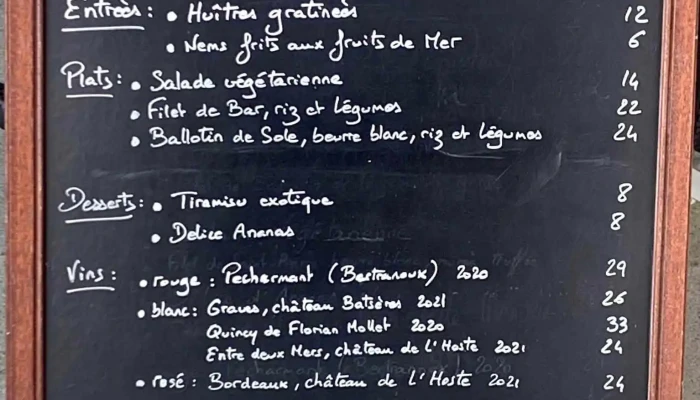 Entrées : • Huîtres gratinées 12
• Nems frits aux fruits de Mer 6
Plats : • Salade végétarienne 14
• Filet de Bar, riz et Légumes 22
• Ballotin de Sole, beurre blanc, riz et Légumes 24
Desserts : • Tiramisu exotique 8
• Delice Ananas 8
Vins : • rouge : Pecharmant (Bertranoux) 2020 29
• blanc : Graves, château 2021 26
Quincy de Florian Mollet 2020 33
Entre deux Mers, château de L'Hoste 2021 24
• rosé : Bordeaux, château de L'Hoste 2021 24